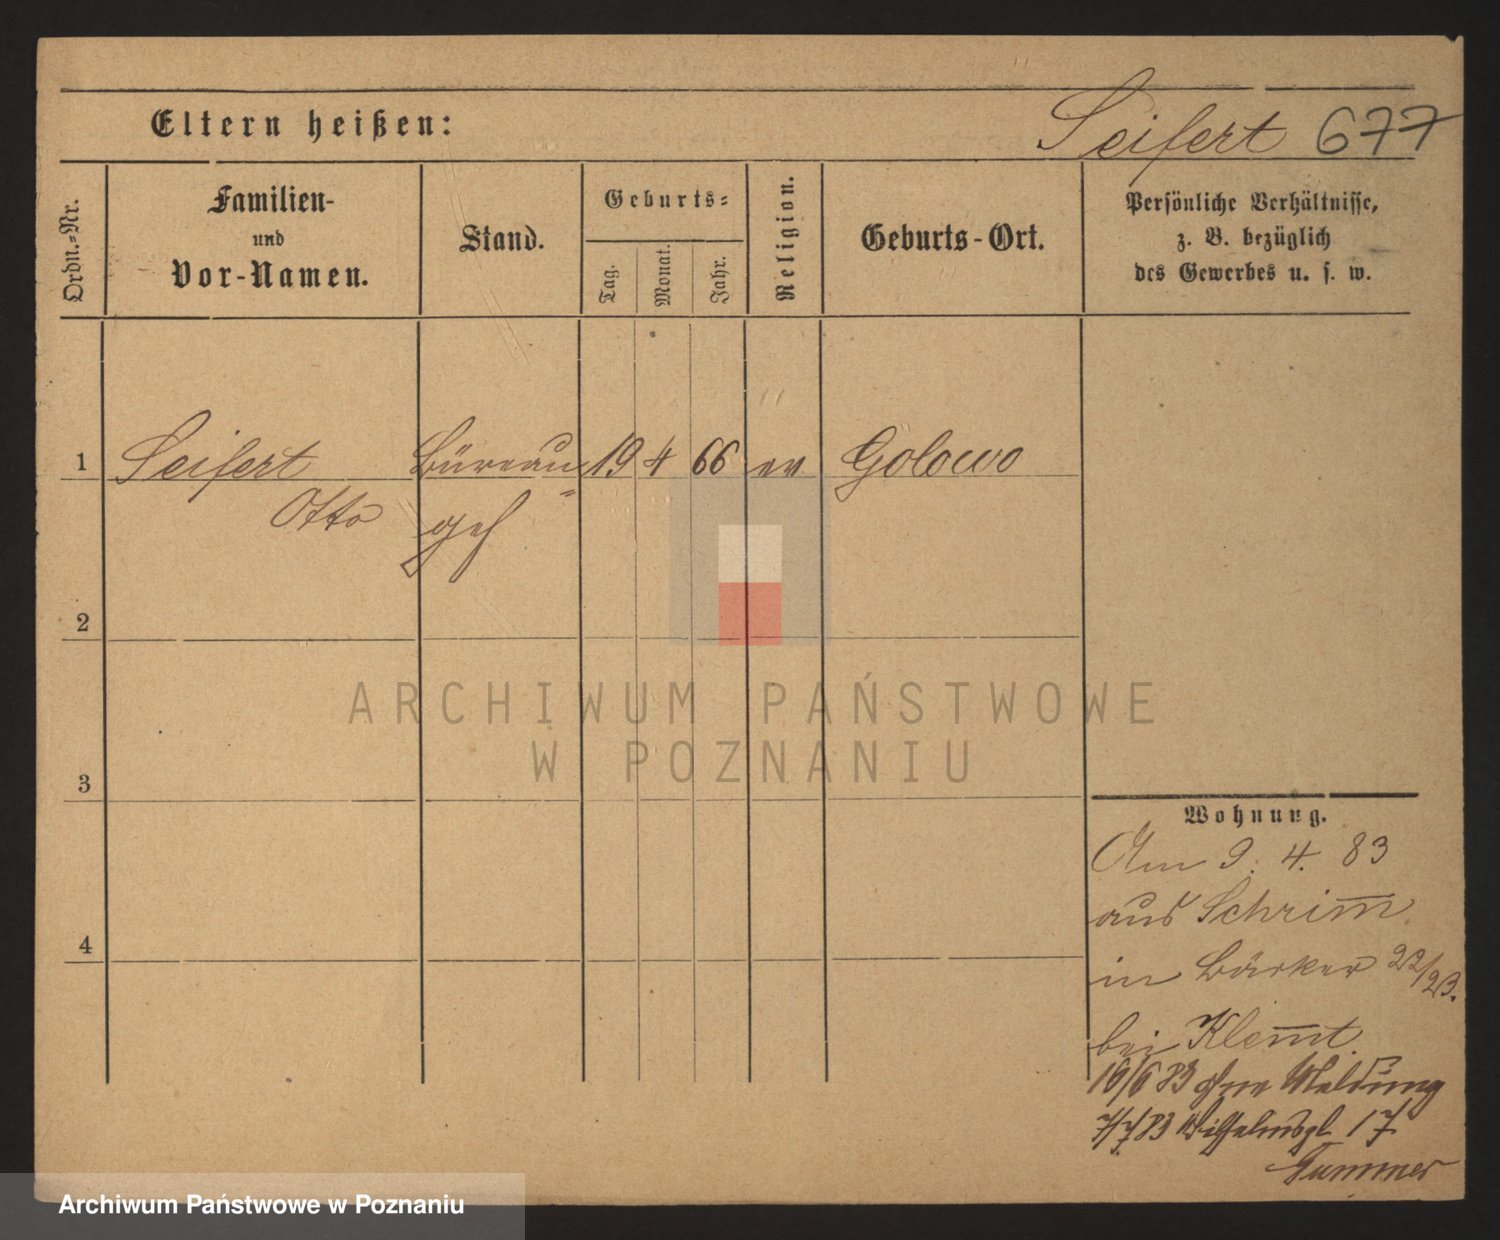 Eltern heißen:
Seifert 677
Ordn.-Nr.
Familien-
und
Vor-Namen.
Stand.
Geburts-
Tag.
Monat.
Jahr.
Religion.
Geburts-Ort.
Persönliche Verhältnisse,
z. B. bezüglich
des Gewerbes u. s. w.
1 Seifert Büreau 19 4 66 ev Golowo
Otto geh
2
3
4
Wohnung.
Am 9. 4. 83
aus Schrim̅
in Bäcker 22/23.
bei Klem̅t
16/6 83 ohne Meldung
7/7 83 Wilhelmspl 17
Summer
ARCHIWUM PAŃSTWOWE
W POZNANIU
Archiwum Państwowe w Poznaniu